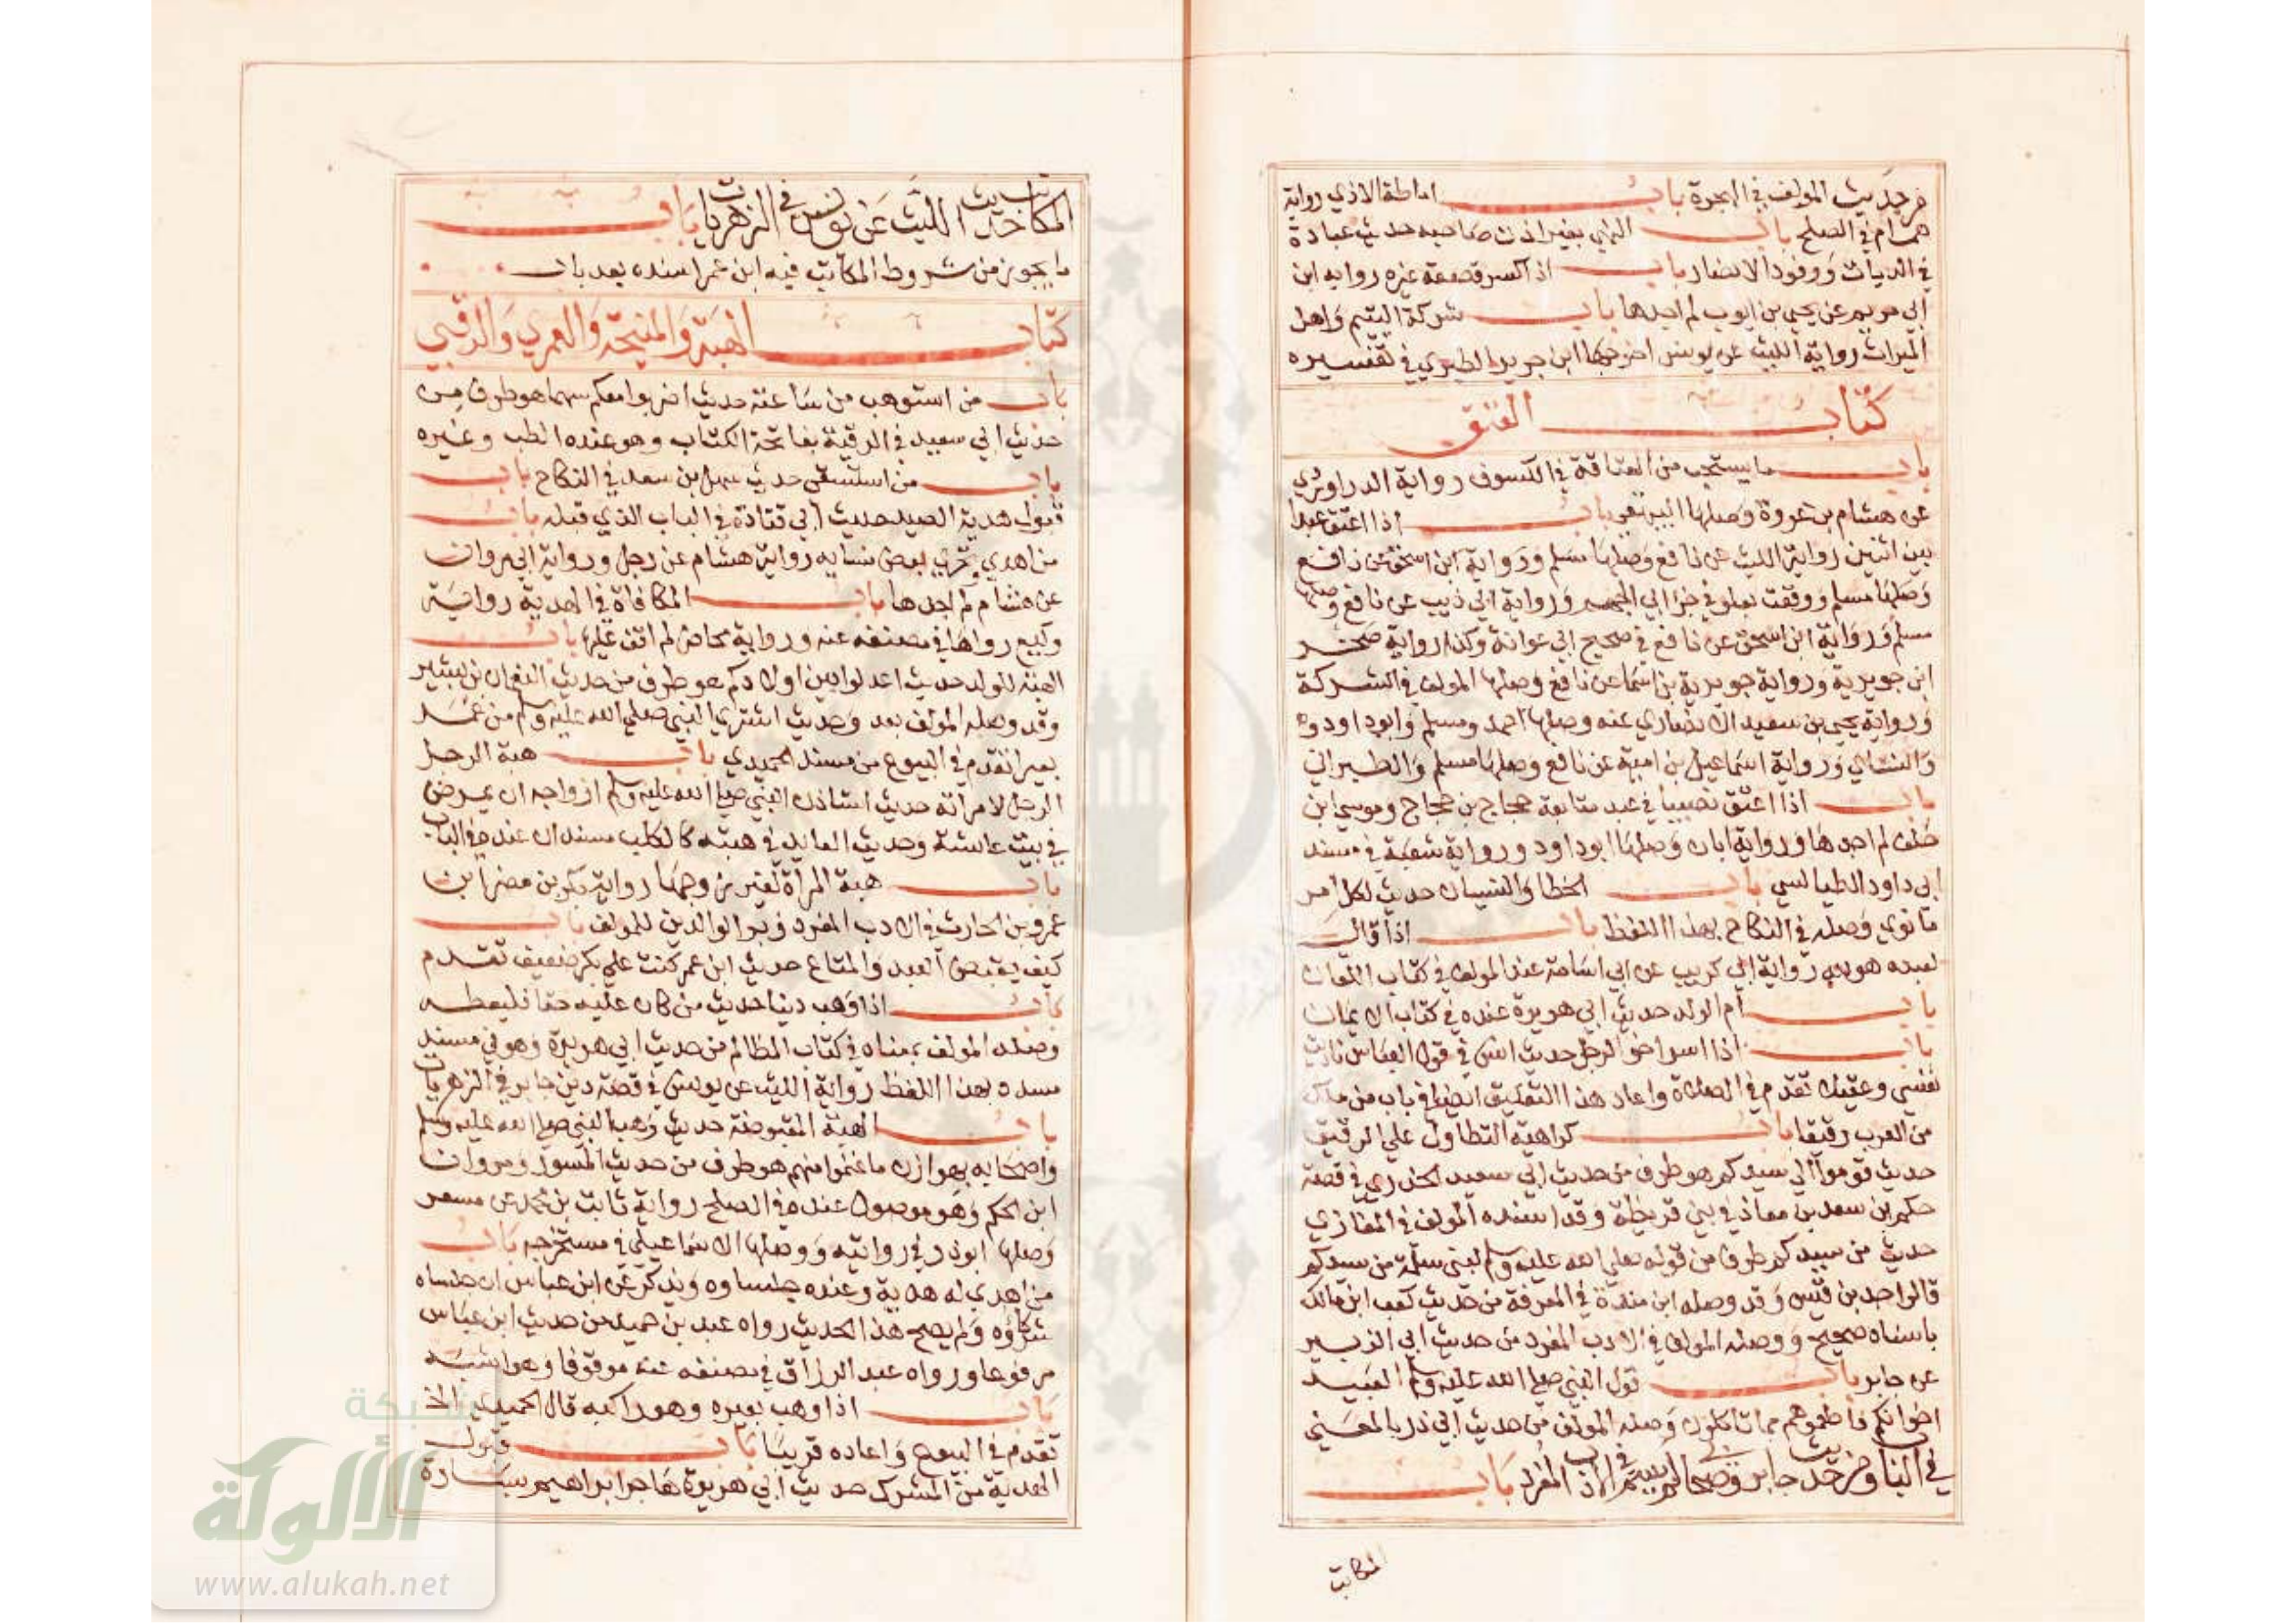 من حديث المولف في الهجرة باب اماطة الاذي رواية
همام في الصلح باب النهبي بغير اذن صاحبه حديث عبادة
في الديات ووفود الانصار باب اذا كسر قصعة غيره رواية ابن
ابي مريم عن يحيي بن ايوب لم اجدها باب شركة اليتيم واهل
الميراث رواية الليث عن يونس اخرجها ابن جرير الطبري في تفسيره
كتاب العتق
باب ما يستحب من العتاقة في الكسوف رواية الدراوردي
عن هشام بن عروة وصلها البيهقي باب اذا اعتق عبدا
بين اثنين رواية الليث عن نافع وصلها مسلم ورواية ابن اسحق عن نافع
وصلها مسلم ووقعت بعلو في جزا ابي الجهم ورواية ابي ذيب عن نافع وصلها
مسلم ورواية ابن اسحق عن نافع في صحيح ابي عوانة وكذا رواية صخر
ابن جويرية ورواية جويرية بن اسما عن نافع وصلها المولف في الشركة
ورواية يحيي بن سعيد الانصاري عنه وصلها احمد ومسلم وابو داود
والنسائي ورواية اسماعيل بن امية عن نافع وصلها مسلم والطبراني
باب اذا اعتق نصيبا في عبد متابعة حجاج بن حجاج وموسي ابن
خلف لم اجدها ورواية ابان وصلها ابو داود ورواية شعبة في مسند
ابي داود الطيالسي باب الخطا والنسيان حديث لكل امر
ما نوي وصله في النكاح بهذا اللفظ باب اذا قال
لعبده هو لله رواية ابي كريب عن ابي اسامة عند المولف في كتاب اللعان
باب ام الولد حديث ابي هريرة عنده في كتاب الايمان
باب اذا اسر اخو الرجل حديث انس في قول العباس فاديت
نفسي وعقيلا تقدم في الصلاة واعاد هذا التعليق ايضا في باب من ملك
من العرب رقيقا باب كراهية التطاول علي الرقيق
حديث قوموا الي سيدكم هو طرف من حديث ابي سعيد الخدري في قصة
حكم بن سعد بن معاذ في بني قريظة وقد اسنده المولف في المغازي
حديث من سيدكم طرف من قوله صلي الله عليه وسلم لبني سلمة من سيدكم
قالوا جد بن قيس وقد وصله ابن مندة في المعرفة من حديث كعب ابن مالك
باسناد صحيح ووصله المولف في الادب المفرد من حديث ابي الزبير
عن جابر باب قول النبي صلي الله عليه وسلم العبيد
اخوانكم فاطعموهم مما تاكلون وصله المولف من حديث ابي ذر بالمعني
في الباب ومن حديث جابر في الادب المفرد باب
المكاتب
المكاتب حديث الليث عن يونس في الزهريات باب
ما يجوز من شروط المكاتب فيه ابن عمر اسنده بعد باب
كتاب الهبة والمنيحة والعمري والرقبي
باب من استوهب من صاحبه حديث اضربوا معكم سهما هو طرف من
حديث ابي سعيد في الرقية بفاتحة الكتاب وهو عنده الطب وغيره
باب من استسقي حديث سهل بن سعد في النكاح باب
قبول هدية الصيد حديث ابي قتادة في الباب الذي قبله باب
من اهدي وتحري بعض نسايه رواية هشام عن رجل ورواية ابي مروان
عن هشام لم اجدها باب المكافاة في الهدية رواية
وكيع رواها في مصنفه عنه ورواية محاضر لم اقف عليها باب
الهبة للولد حديث اعدلوا بين اولادكم هو طرف من حديث النعمان بن بشير
وقد وصله المولف بعد وحديث اشتري النبي صلي الله عليه وسلم من عمر
بعيرا تقدم في البيوع من مسند الحميدي باب هبة الرجل
الرجل لامراته حديث استاذن النبي صلي الله عليه وسلم ازواجه ان يمرض
في بيت عائشة وحديث العائد في هبته كالكلب مسندان عنده في الباب
باب هبة المراة لغير زوجها رواية بكر بن مضر ابن
عمرو بن الحارث في الادب المفرد وبر الوالدين للمولف باب
كيف يقبض العبد والمتاع حديث ابن عمر كنت علي بكر ضعيف تقدم
باب اذا وهب دينا حديث من كان عليه حقا فليعطه
وصله المولف بمعناه في كتاب المظالم من حديث ابي هريرة وهو في مسند
مسدد بهذا اللفظ رواية الليث عن يونس في قصة دين جابر في الزهريات
باب الهبة المقبوضة حديث وهب النبي صلي الله عليه وسلم
واصحابه بهوازن ما غنموا منهم هو طرف من حديث المسور ومروان
ابن الحكم وهو موصول عنده في الصلح رواية ثابت بن محمد عن مسعر
وصلها ابو ذر في روايته ووصلها الاسماعيلي في مستخرجه باب
من اهدي له هدية وعنده جلساوه ويذكر عن ابن عباس ان جلساه
شركاؤه ولم يصح هذا الحديث رواه عبد بن حميد من حديث ابن عباس
مرفوعا ورواه عبد الرزاق في مصنفه عنه موقوفا وهو اشبه
باب اذا وهب بعيره وهو راكبه قال الحميدي الخ
تقدم في البيوع واعاده قريبا باب قبول
الهدية من المشرك حديث ابي هريرة هاجر ابراهيم بسارة
شبكة
الألوكة
www.alukah.net